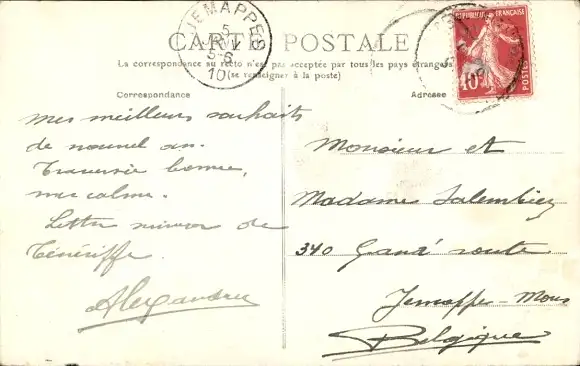 JEMAPPES
5
JANV
5-6
10
CARTE POSTALE
La correspondance au recto n'est pas acceptée par tous les pays étrangers
(se renseigner à la poste)
Correspondance
Mes meilleurs souhaits
de nouvel an.
Traversée bonne,
mer calme.
Lettre suivra de
Ténériffe.
Alexandre
REPUBLIQUE FRANÇAISE
10c
POSTES
Adresse
Monsieur et
Madame Salembier
340 Grand' route
Jemappe-Mons
Belgique